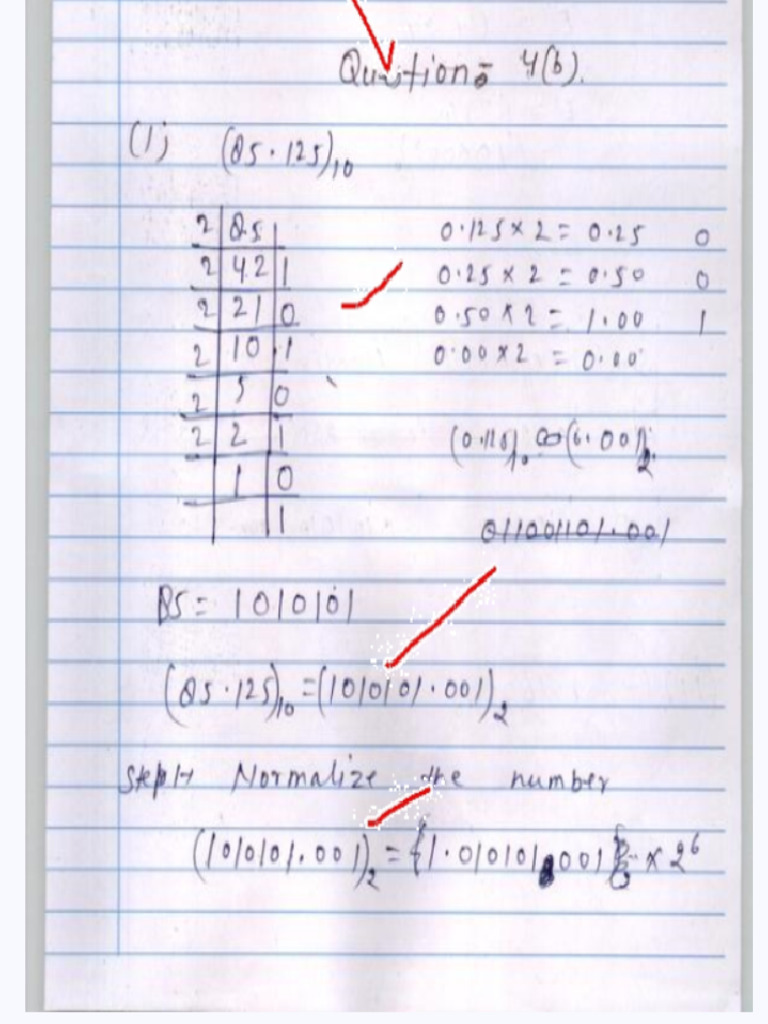 Question:- 4(b).
(1) (85.125)10
2 85
2 42 1
2 21 0
2 10 1
2 5 0
2 2 1
1 0
1
0.125 × 2 = 0.25 0
0.25 × 2 = 0.50 0
0.50 × 2 = 1.00 1
0.00 × 2 = 0.00
85 = 1010101
(85.125)10 = (1010101.001)2
Step 1:- Normalize the number
(1010101.001)2 = {1.010101001} × 2^6